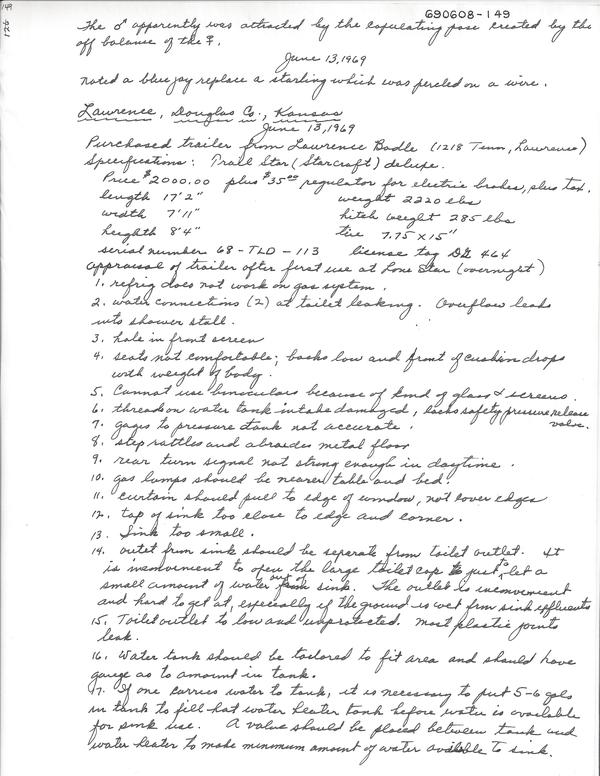 149
126
690608-149
The ♂ apparently was attracted by the copulating pose created by the
off balance of the ♀.
June 13, 1969
Noted a bluejay replace a starling which was perched on a wire.
Lawrence, Douglas Co., Kansas
June 13, 1969
Purchased trailer from Lawrence Bodle (1218 Tenn, Lawrence)
Specifications: Trail Star (Starcraft) deluxe.
Price $2000.00 plus $35.00 regulator for electric brakes, plus tax.
length 17'2" weight 2220 lbs
width 7'11" hitch weight 285 lbs
heighth 8'4" tire 7.75 x 15"
serial number 68-TLD-113 license tag DG 464
appraisal of trailer after first use at Lone Star (overnight)
1. refrig does not work on gas system.
2. water connections (2) at toilet leaking. Overflow leaks
into shower stall.
3. hole in front screen
4. seats not comfortable; backs low and front of cushion drops
with weight of body.
5. Cannot use binoculars because of kind of glass & screens.
6. threads on water tank intake damaged, lacks safety pressure release
valve.
7. gages to pressure tank not accurate.
8. step rattles and abraides metal floor
9. rear turn signal not strong enough in daytime.
10. gas lamps should be nearer table and bed.
11. curtain should pull to edge of window, not cover edges
12. tap of sink too close to edge and corner.
13. Sink too small.
14. outlet from sink should be separate from toilet outlet. It
is inconvenient to open the large toilet cap to just let a
small amount of water out of sink. The outlet is inconvenient
and hard to get at, especially if the ground is wet from sink effluents
15. Toilet outlet to low and unprotected. Most plastic joints
leak.
16. Water tank should be tailored to fit area and should have
gauge as to amount in tank.
17. If one carries water to tank, it is necessary to put 5-6 gals
in tank to fill hot water heater tank before water is available
for sink use. A valve should be placed between tank and
water heater to make minimum amount of water available to sink.